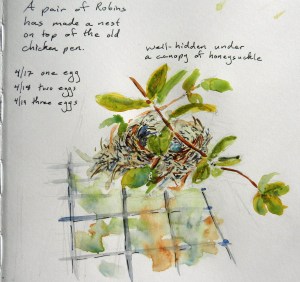 A pair of Robins
has made a nest
on top of the old
chicken pen.
well-hidden under
a canopy of honeysuckle
4/17 one egg
4/18 two eggs
4/19 three eggs